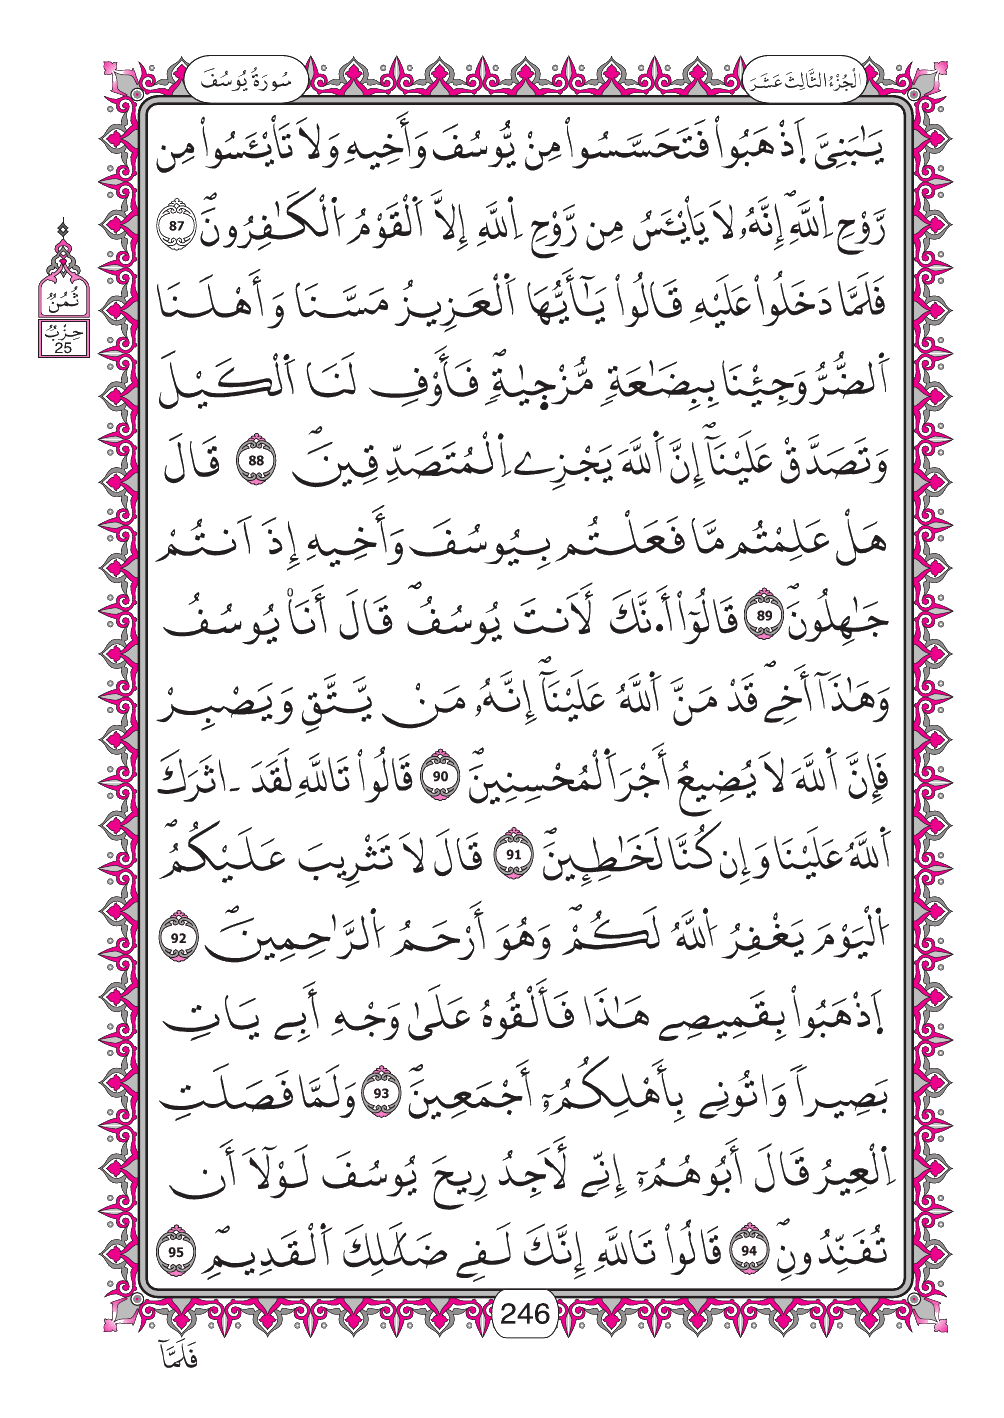 الْجُزْءُ الثَّالِثَ عَشَرَ
سُورَةُ يُوسُفَ
يَٰبَنِيَّ اَ۪ذْهَبُواْ فَتَحَسَّسُواْ مِنْ يُّوسُفَ وَأَخِيهِ وَلَا تَاْيْـَٔسُواْ مِن
رَّوْحِ اِ۬للَّهِۖ إِنَّهُۥ لَا يَاْيْـَٔسُ مِن رَّوْحِ اِ۬للَّهِ إِلَّا اَ۬لْقَوْمُ اُ۬لْكَٰفِرُونَۖ 87
فَلَمَّا دَخَلُواْ عَلَيْهِ قَالُواْ يَٰٓأَيُّهَا اَ۬لْعَزِيزُ مَسَّنَا وَأَهْلَنَا
اَ۬لضُّرُّ وَجِئْنَا بِبِضَٰعَةٖ مُّزْجَيٰةٖۖ فَأَوْفِ لَنَا اَ۬لْكَيْلَ
وَتَصَدَّقْ عَلَيْنَآۖ إِنَّ اَ۬للَّهَ يَجْزِے اِ۬لْمُتَصَدِّقِينَۖ 88 قَالَ
هَلْ عَلِمْتُم مَّا فَعَلْتُم بِيُوسُفَ وَأَخِيهِ إِذَ اَنتُمْ
جَٰهِلُونَۖ 89 قَالُوٓاْ أَ۟نَّكَ لَأَنتَ يُوسُفُۖ قَالَ أَنَا۠ يُوسُفُ
وَهَٰذَآ أَخِےۖ قَدْ مَنَّ اَ۬للَّهُ عَلَيْنَآۖ إِنَّهُۥ مَنْ يَّتَّقِ وَيَصْبِرْ
فَإِنَّ اَ۬للَّهَ لَا يُضِيعُ أَجْرَ اَ۬لْمُحْسِنِينَۖ 90 قَالُواْ تَاللَّهِ لَقَدَ ـ اثَرَكَ
اَ۬للَّهُ عَلَيْنَا وَإِن كُنَّا لَخَٰطِـِٕينَۖ 91 قَالَ لَا تَثْرِيبَ عَلَيْكُمُۖ
اُ۬لْيَوْمَ يَغْفِرُ اُ۬للَّهُ لَكُمْۖ وَهُوَ أَرْحَمُ اُ۬لرَّٰحِمِينَۖ 92
اَ۪ذْهَبُواْ بِقَمِيصِے هَٰذَا فَأَلْقُوهُ عَلَىٰ وَجْهِ أَبِے يَاتِ
بَصِيراٗ وَاتُونِے بِأَهْلِكُمُۥٓ أَجْمَعِينَۖ 93 وَلَمَّا فَصَلَتِ
اِ۬لْعِيرُ قَالَ أَبُوهُمُۥٓ إِنِّے لَأَجِدُ رِيحَ يُوسُفَ لَوْلَآ أَن
تُفَنِّدُونِۖ 94 قَالُواْ تَاللَّهِ إِنَّكَ لَفِے ضَلَٰلِكَ اَ۬لْقَدِيمِۖ 95
ثُمُنُ
حِزْبٌ
25
246
فَلَمَّآ